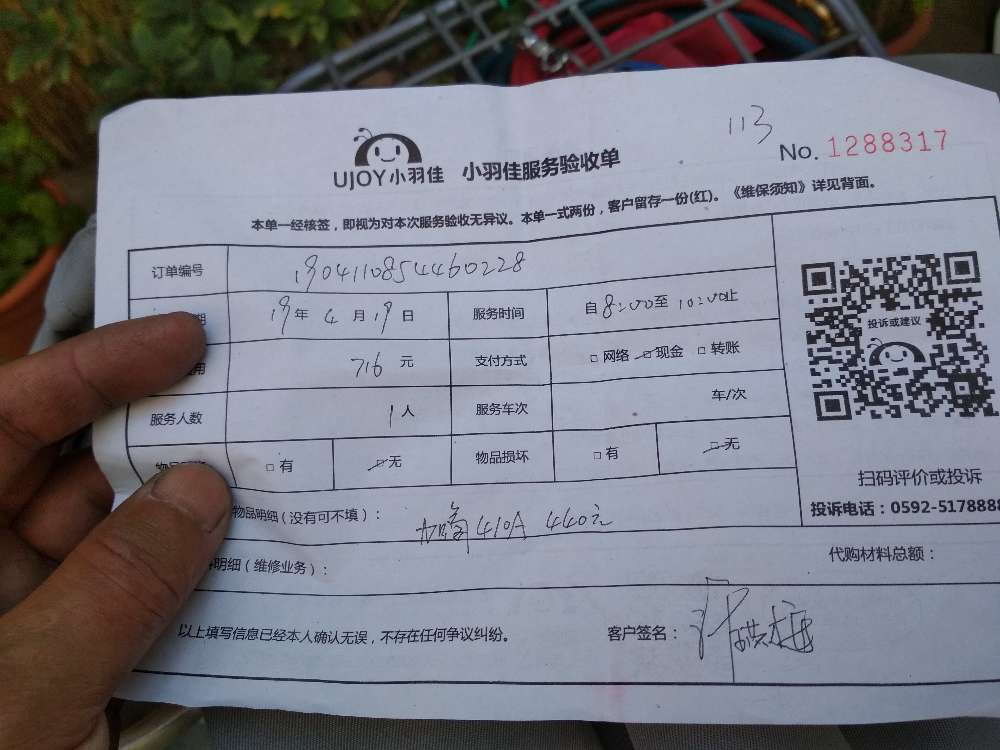 113
UJOY小羽佳 小羽佳服务验收单 No. 1288317
本单一经核签，即视为对本次服务验收无异议。本单一式两份，客户留存一份(红)。《维保须知》详见背面。
订单编号 1904110854460228
期 19年 4月 19日 服务时间 自8:00至10:00止
用 716元 支付方式 □网络 ☑现金 □转账
服务人数 1人 服务车次 车/次
□有 ☑无 物品损坏 □有 ☑无
投诉或建议
扫码评价或投诉
投诉电话：0592-5178888
物品明细（没有可不填）： 410A 440元
明细（维修业务）： 代购材料总额：
以上填写信息已经本人确认无误，不存在任何争议纠纷。 客户签名：